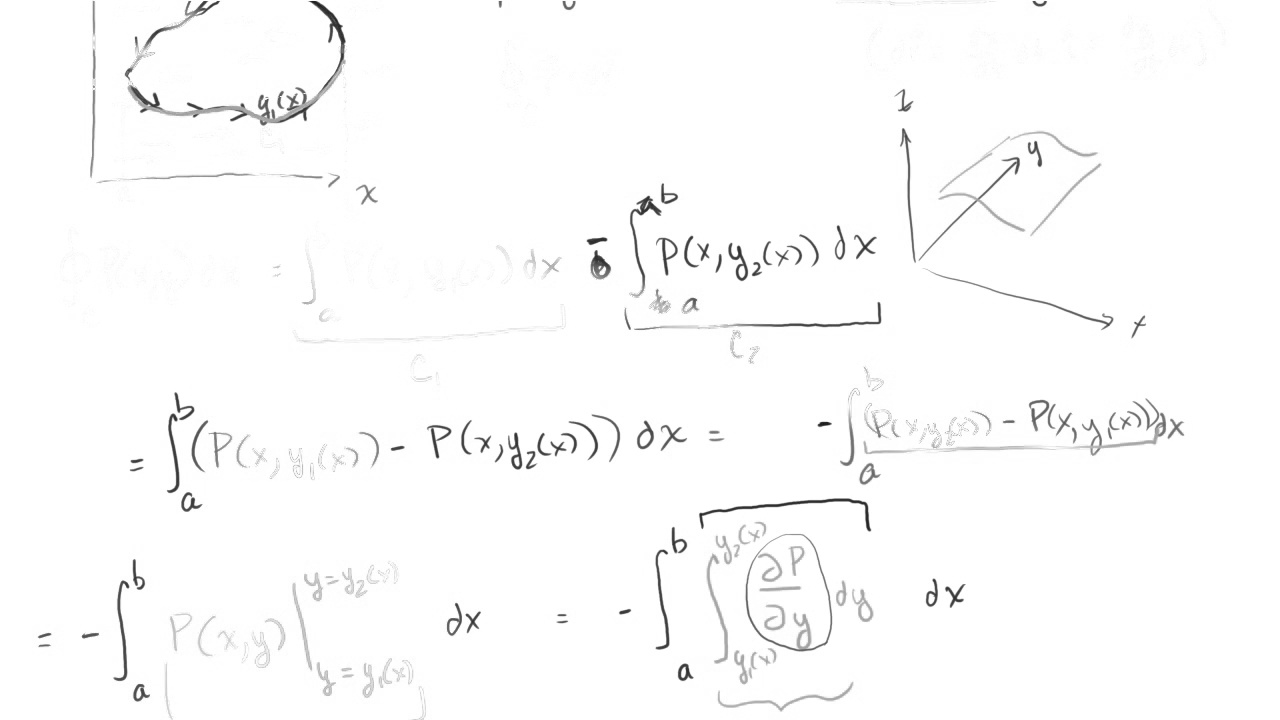 y₁(x)
x
z
y
x
∮ P(x,y) dx = ∫ₐᵇ P(x, y₁(x)) dx - ∫ₐᵇ P(x, y₂(x)) dx
C₁
C₂
= ∫ₐᵇ (P(x, y₁(x)) - P(x, y₂(x))) dx = - ∫ₐᵇ (P(x, y₂(x)) - P(x, y₁(x))) dx
= - ∫ₐᵇ P(x,y) |_{y = y₁(x)}^{y = y₂(x)} dx = - ∫ₐᵇ ∫_{y₁(x)}^{y₂(x)} ∂P/∂y dy dx